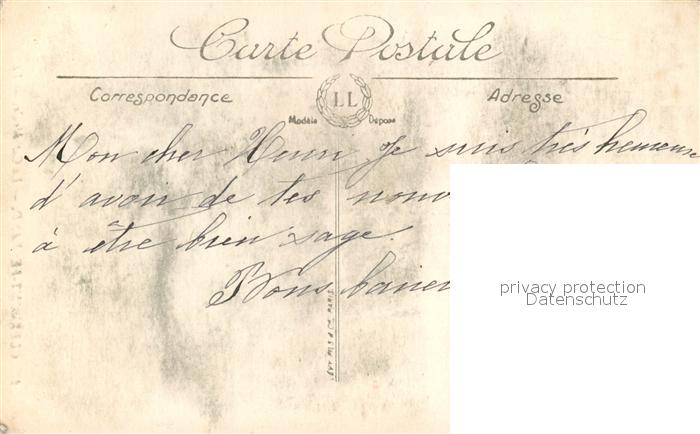 Carte Postale
Correspondance
LL
Adresse
Modèle Déposé
Mon cher Henri Je suis très heureux
d'avoir de tes
à être bien sage.
Bons
privacy protection
Datenschutz